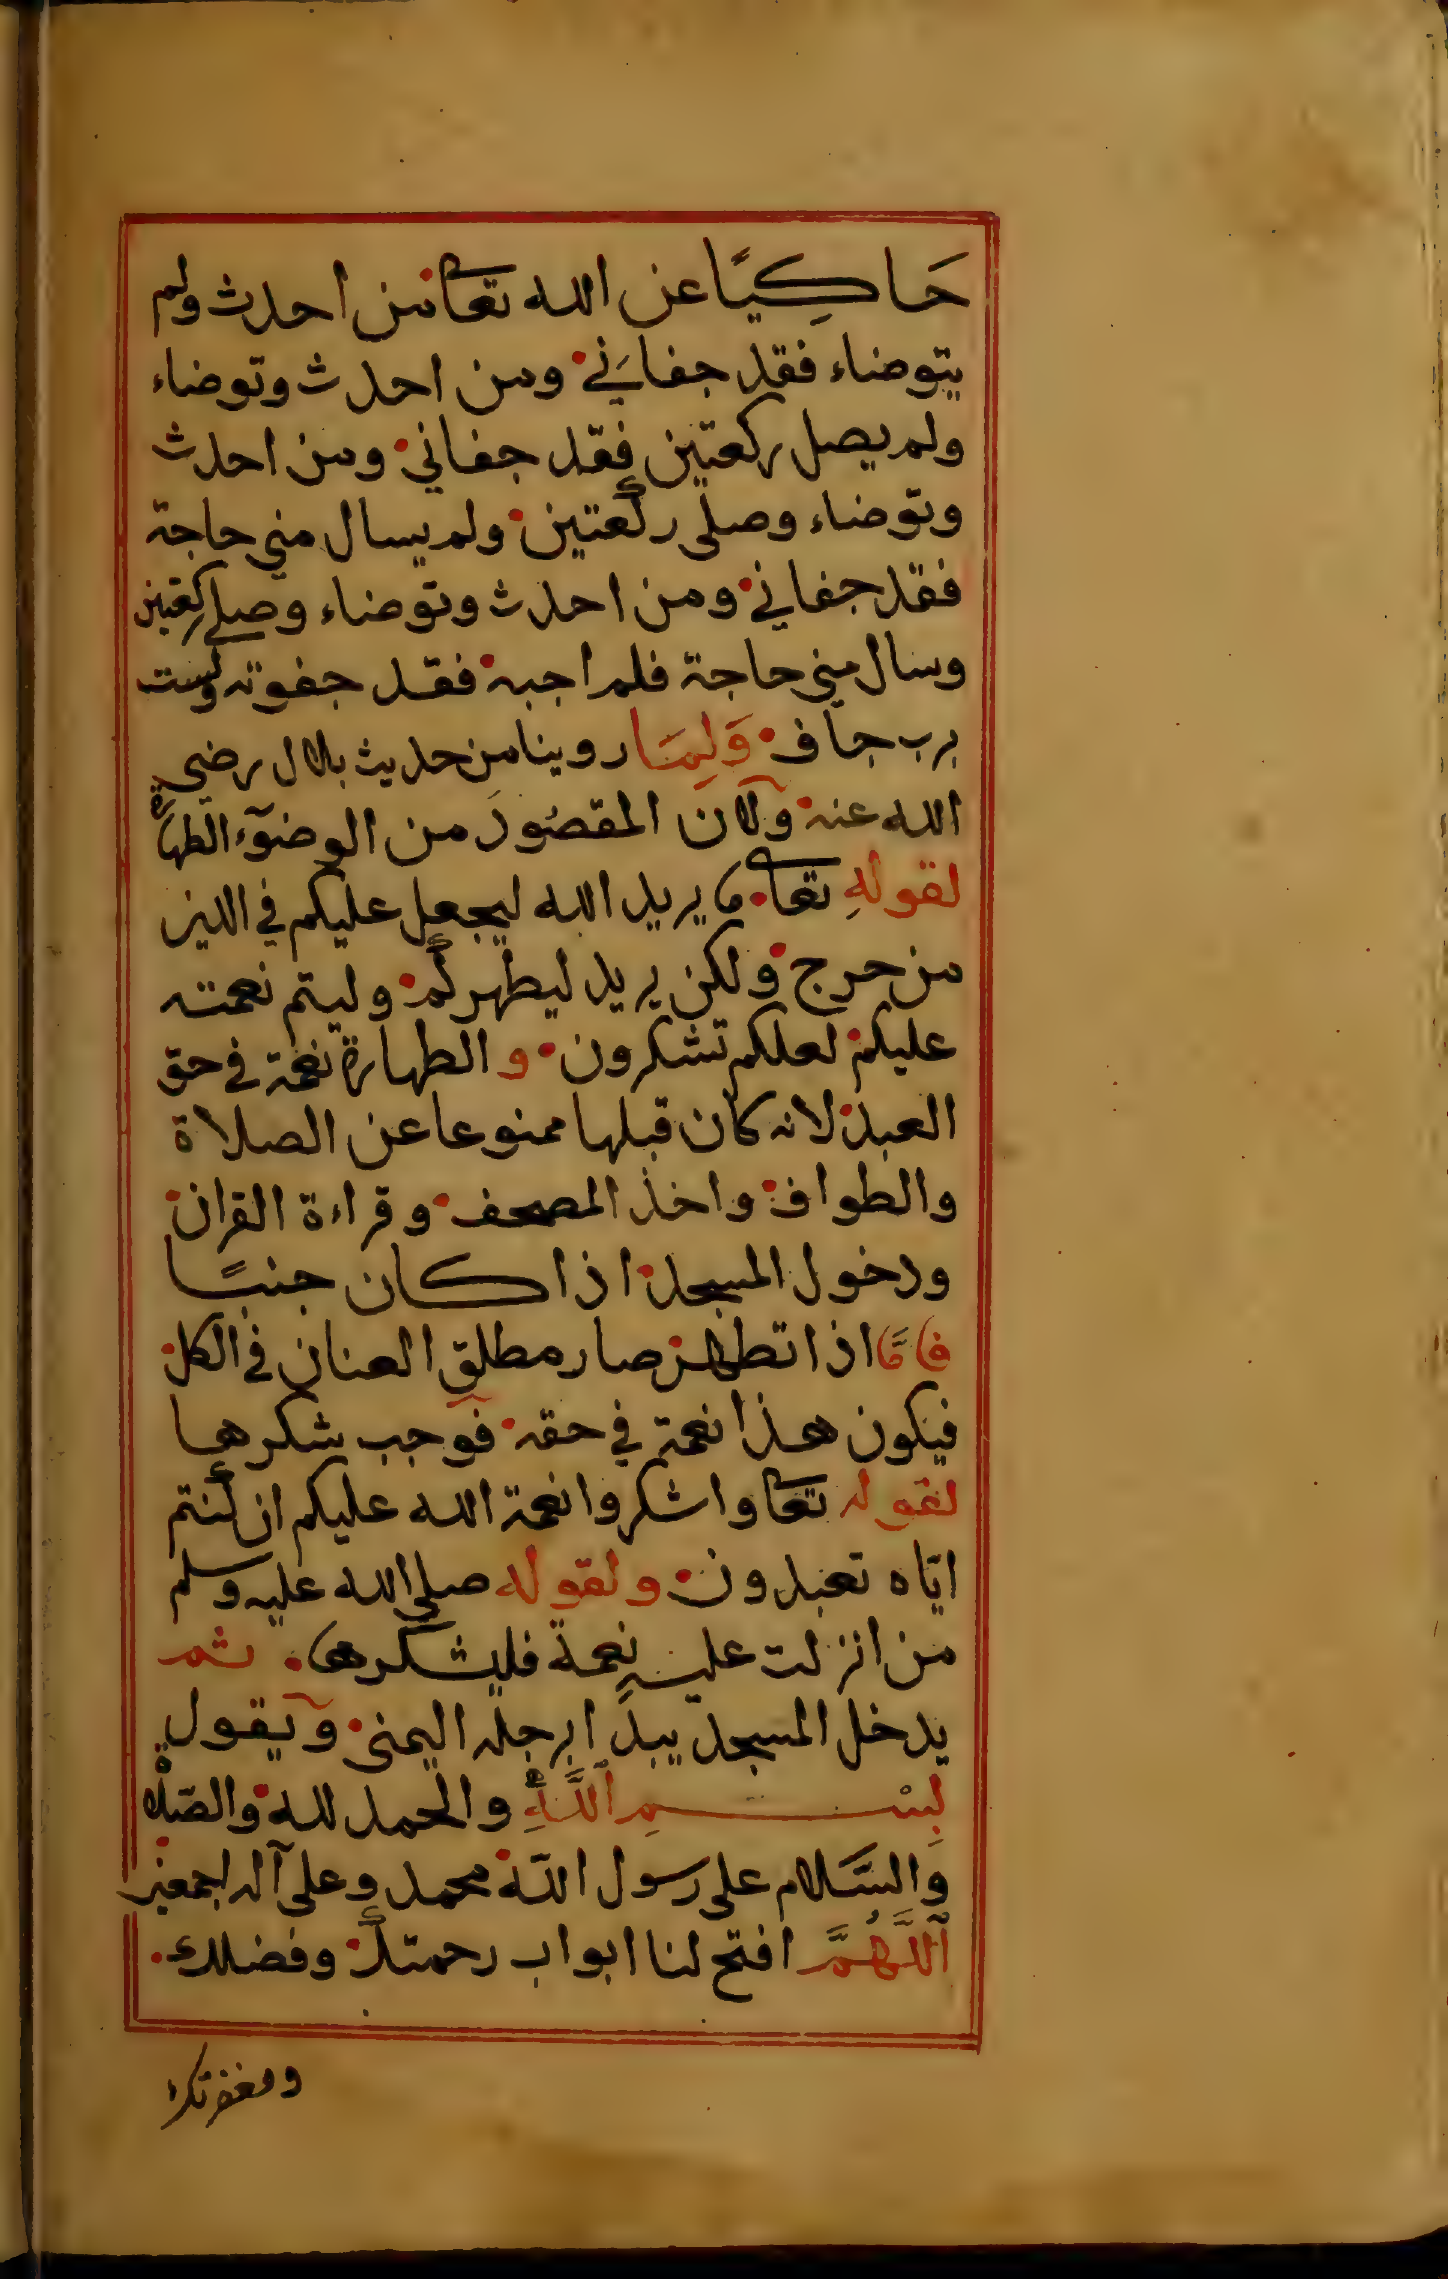 حَاكِيًا عن الله تعا من احدث ولم
يتوضاء فقد جفاني ومن احدث وتوضاء
ولم يصل ركعتين فقد جفاني ومن احدث
وتوضاء وصلى ركعتين ولم يسال مني حاجة
فقد جفاني ومن احدث وتوضاء وصلى ركعتين
وسال مني حاجة فلم اجبه فقد جفوته ولست
برب جاف وَلِمَا روينا من حديث بلال رضي
الله عنه ولان المقصُود من الوضوء الطهارة
لقولهِ تعا ما يريد الله ليجعل عليكم في الدين
من حرج ولكن يريد ليطهركم وليتم نعمته
عليكم لعلكم تشكرون والطهارة نعمة في حق
العبد لانه كان قبلها ممنوعا عن الصلاة
والطواف واخذ المصحف وقراءة القران
ودخول المسجد اذا كان جنبًا
فامَّا اذا تطهر صار مطلق العنان في الكل
فيكون هذا نعمة في حقه فوجب شكرها
لقوله تعا واشكروا نعمة الله عليكم ان كنتم
ايّاه تعبدون ولقوله صلى الله عليه وسلم
من انزلت عليهِ نعمة فليشكرها ثم
يدخل المسجد يبدا برجله اليمنى ويقول
بِسْمِ ٱللَّهِ والحمد لله والصّلاة
والسَّلام على رسول الله محمد وعلى آله اجمعين
ٱللَّهُمَّ افتح لنا ابواب رحمتك وفضلك
ومغفرتك